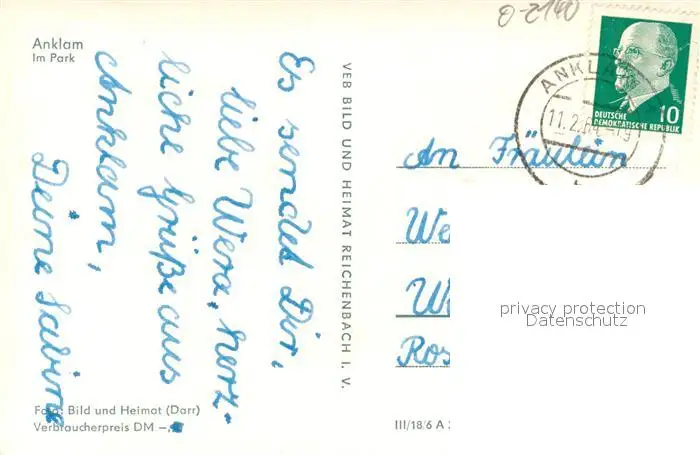 Ø-2140
Anklam
Im Park
Es sendet Dir,
liebe Wera, herz-
liche Grüße aus
Anklam,
Deine Sabine
Foto: Bild und Heimat (Darr)
Verbraucherpreis DM -,
VEB BILD UND HEIMAT REICHENBACH I. V.
III/18/6 A
ANKLAM
11.2.64
DEUTSCHE
DEMOKRATISCHE REPUBLIK
10
An Fräulein
We
W
Ros
privacy protection
Datenschutz